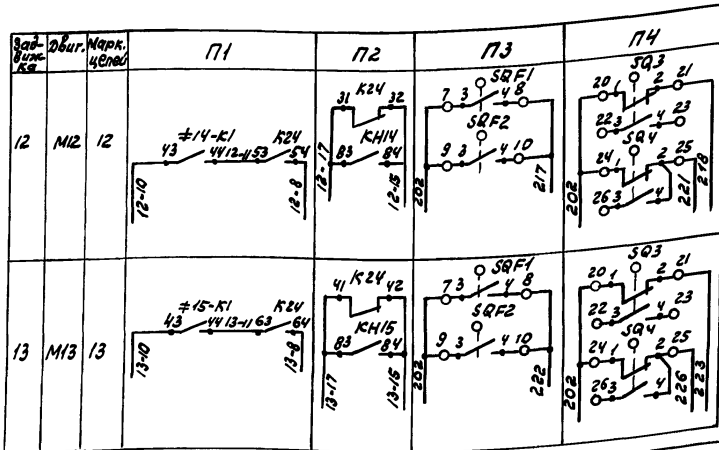 Задвижка Двиг. Марк. цепей П1 П2 П3 П4
12 М12 12
≠14-К1 К24
43 44 12-11 53 54
12-10 12-8
К24
31 32
КН14
83 84
12-17 12-15
SQF1
7 3 4 8
SQF2
9 3 4 10
202 217
SQ3
20 1 2 21
22 3 4 23
SQ4
24 1 2 25
26 3 4
202 221 218
13 М13 13
≠15-К1 К24
43 44 13-11 63 64
13-10 13-8
К24
41 42
КН15
83 84
13-17 13-15
SQF1
7 3 4 8
SQF2
9 3 4 10
202 222
SQ3
20 1 2 21
22 3 4 23
SQ4
24 1 2 25
26 3 4
202 226 223